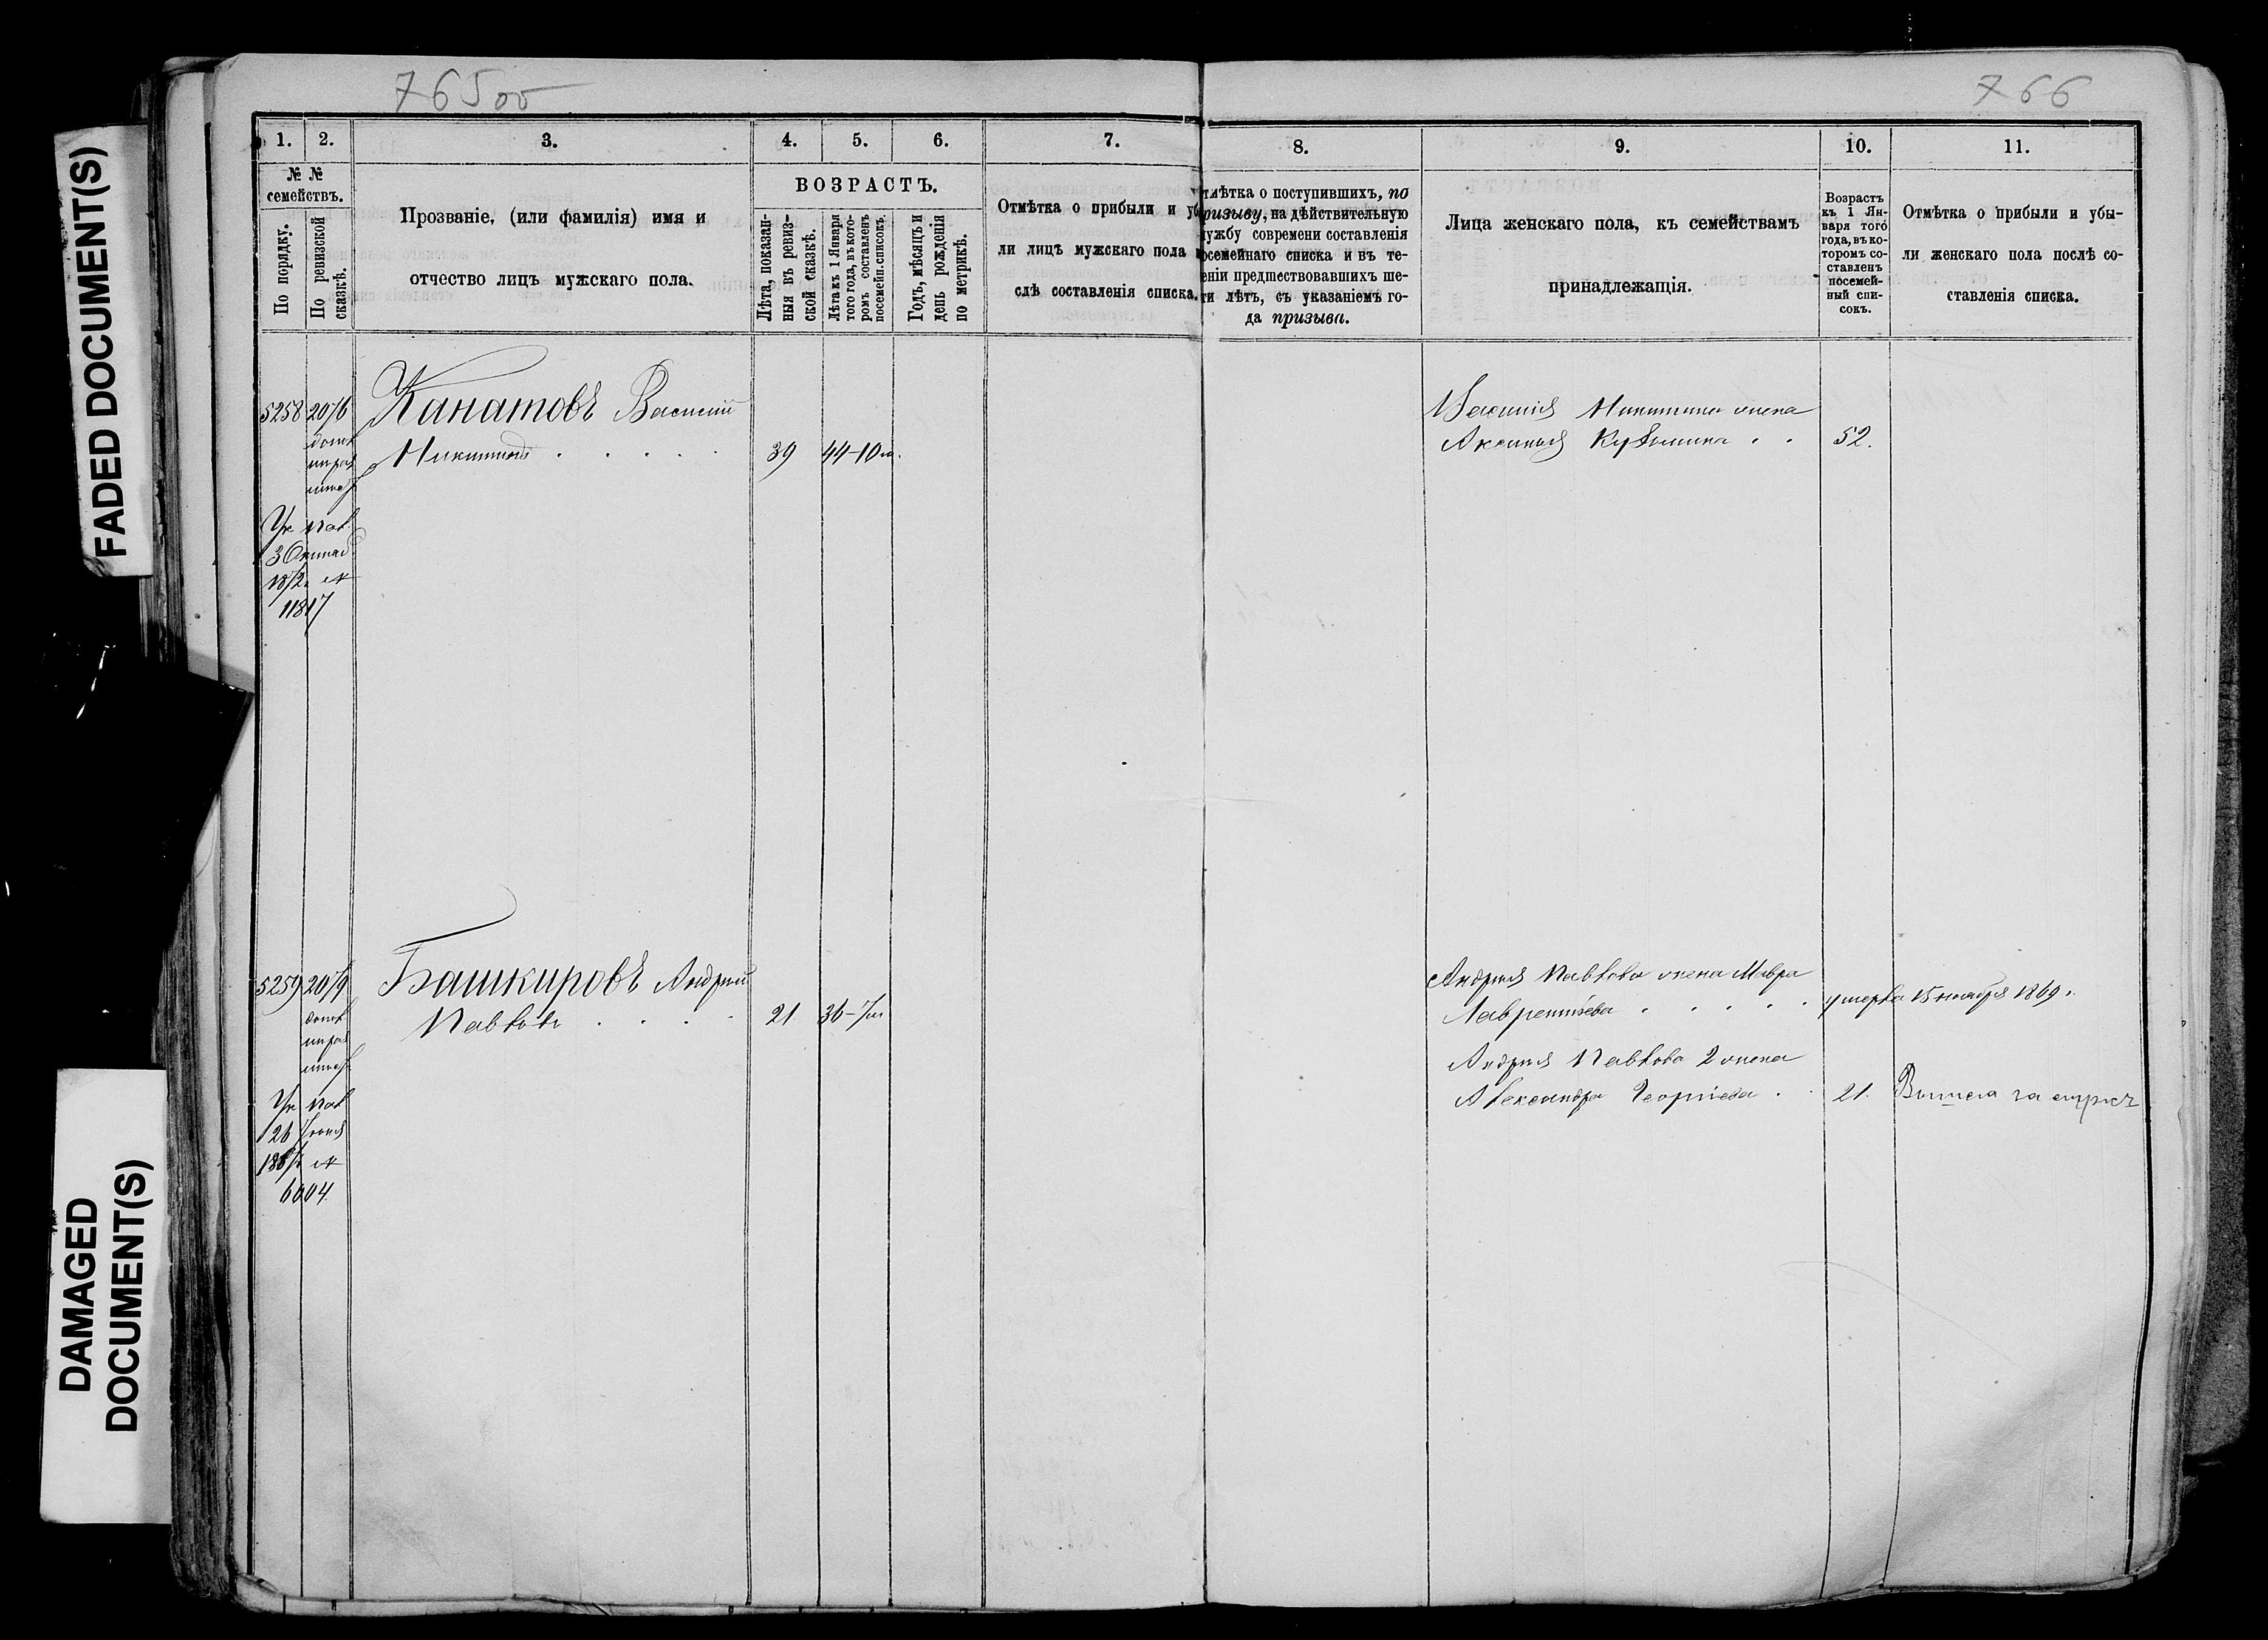 FADED DOCUMENT(S)
DAMAGED
DOCUMENT(S)
765 об
766
1.
2.
3.
4.
5.
6.
7.
8.
9.
10.
11.
№ №
семействъ.
По порядку.
По ревизской
сказкѣ.
Прозваніе, (или фамилія) имя и
отчество лицъ мужскаго пола.
ВОЗРАСТЪ.
Лѣта, показан-
ныя въ ревиз-
ской сказкѣ.
Лѣта къ 1 Января
того года, въ кото-
ромъ составленъ
посемейн. списокъ.
Годъ, мѣсяцъ и
день рожденія
по метрикѣ.
Отмѣтка о прибыли и уб
ли лицъ мужскаго пола
слѣ составленія списка.
тмѣтка о поступившихъ, по
ризыву, на дѣйствительную
ужбу современи составленія
осемейнаго списка и въ те-
еніи предшествовавшихъ ше-
ти лѣтъ, съ указаніемъ го-
да призыва.
Лица женскаго пола, къ семействамъ
принадлежащія.
Возрастъ
къ 1 Ян-
варя того
года, въ ко-
торомъ со-
ставленъ
посемей-
ный спи-
сокъ.
Отмѣтка о прибыли и убы-
ли женскаго пола послѣ со-
ставленія списка.
5258 2076 Канатовъ Василій
Никитинъ 39 44-10м.
Василія Никитина жена
Аксинья Кузьмина 52.
Ук пал
3 Октяб
1872 №
11817
5259 2079 Башкировъ Андрей
Павловъ 21 36-7м
Андрея Павлова жена Мавра
Лаврентіева умерла 15 ноября 1869 г.
Андрея Павлова 2 жена
Александра Георгіева 21. Вышла за
Ук пал
26 Іюня
№
6004